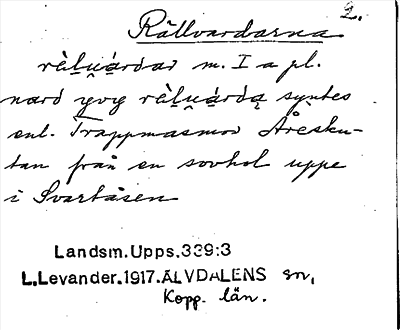 2.
Rällvardarna
rä̀lu̯árdar m. I a pl.
nard yvy rä̀lu̯árdą syntes
enl. Trappmasmor Åresku-
tan från en sovhol uppe
i Svartåsen
Landsm. Upps. 339:3
L. Levander. 1917. ÄLVDALENS sn,
Kopp. län.